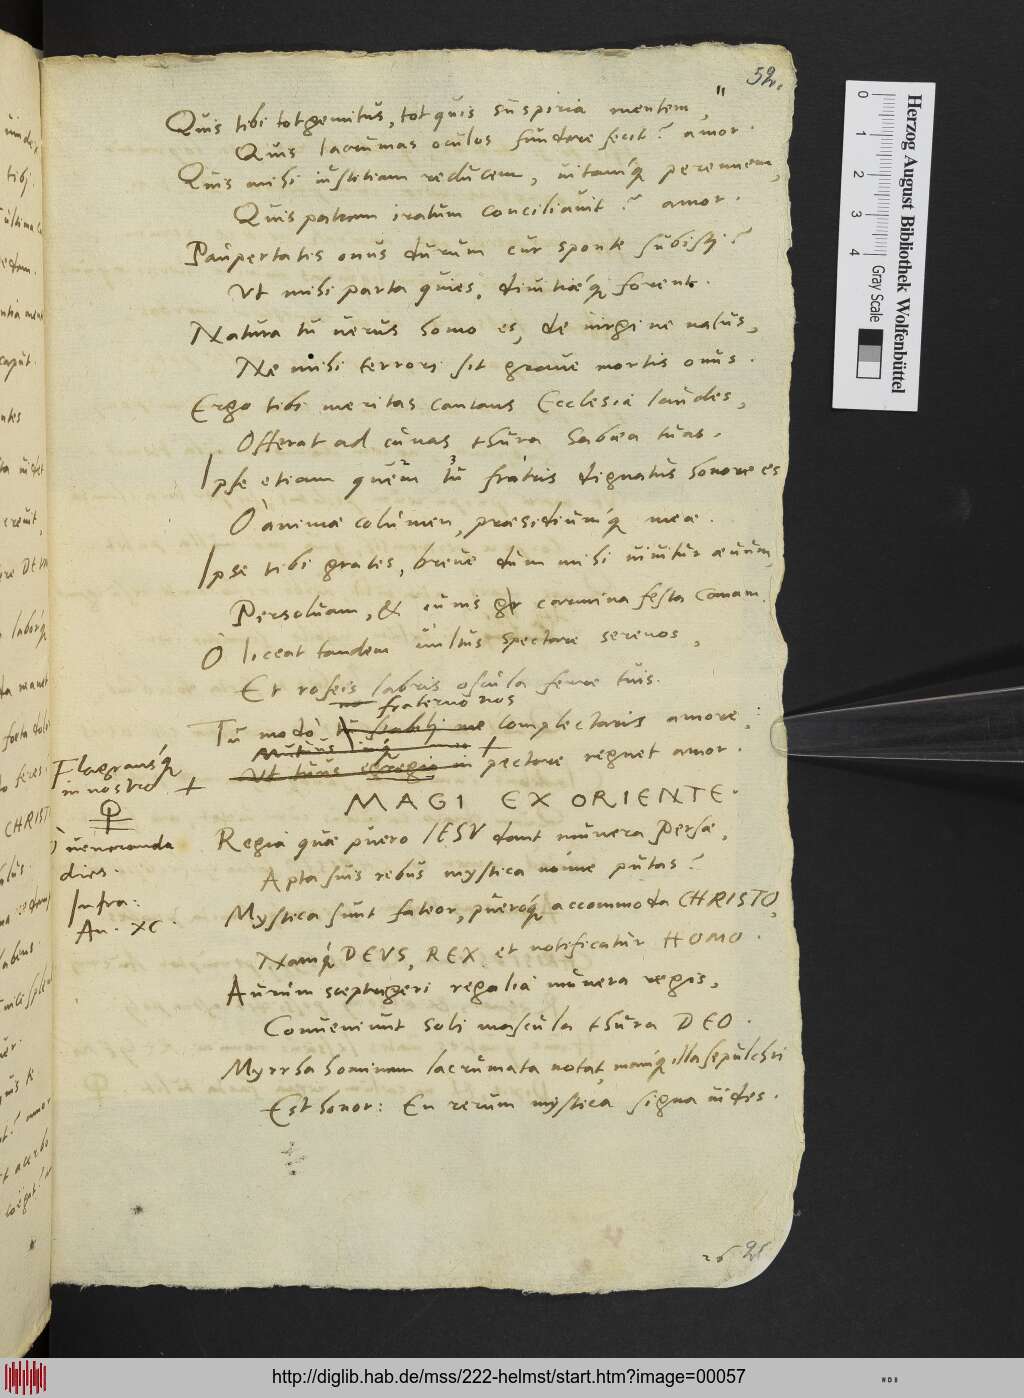 52.
Quis tibi tot gemitus, tot quis suspiria mentem,
Quis lacrumas oculos fundere fecit? amor.
Quis mihi iustitiam reducem, uitamq́ perennem,
Quis patrem iratum conciliauit? amor.
Paupertatis onus durum cur sponte subisti?
Vt mihi parta quies, diuitiæq́ forent.
Natura tu uerus homo es, de uirgine natus,
Ne mihi terrori sit graue mortis onus.
Ergo tibi meritas cantans Ecclesia laudes,
Offerat ad cunas thura Sabæa tuas.
Ipse etiam quem tu fratris dignatus honore es
O animæ columen, præsidiumq́ meæ.
Ipse tibi grates, breue dum mihi uiuitur æuum,
Persoluam, & cunis carmina festa canam.
O liceat tandem uultus spectare serenos,
Et roseis labris oscula ferre tuis.
fraterno nos
Tu modo complectaris amore,
Mutuus inq́
Vt tuus egregio in pectore regnet amor.
Flagransq́
in nostro
O ueneranda
dies.
Infra:
An. XC.
MAGI EX ORIENTE.
Regia quæ puero IESV dant munera Persæ,
Apta suis rebus mystica nonne putas?
Mystica sunt fateor, pueroq́ accommoda CHRISTO,
Namq́ DEVS, REX et notificatur HOMO.
Aurum sceptrigeri regalia munera regis,
Conueniunt soli mascula thura DEO.
Myrrha hominem lacrumata notat, namq́ illa sepulchri
Est honor: En rerum mystica signa uides.
26 25
Herzog August Bibliothek Wolfenbüttel
0 1 2 3 4
Gray Scale
http://diglib.hab.de/mss/222-helmst/start.htm?image=00057